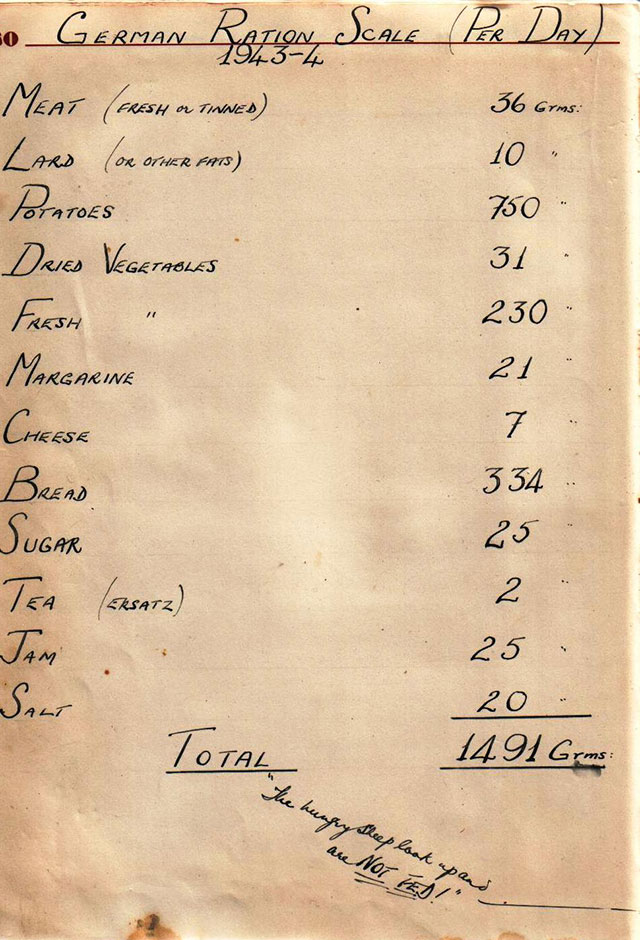 60
GERMAN RATION SCALE (PER DAY)
1943-4
MEAT (FRESH or TINNED) 36 Grms:
LARD (OR OTHER FATS) 10 "
POTATOES 750 "
DRIED VEGETABLES 31 "
FRESH " 230 "
MARGARINE 21 "
CHEESE 7 "
BREAD 334 "
SUGAR 25 "
TEA (ERSATZ) 2 "
JAM 25 "
SALT 20 "
TOTAL 1491 Grms:
"The hungry sheep look up and
are NOT FED!"